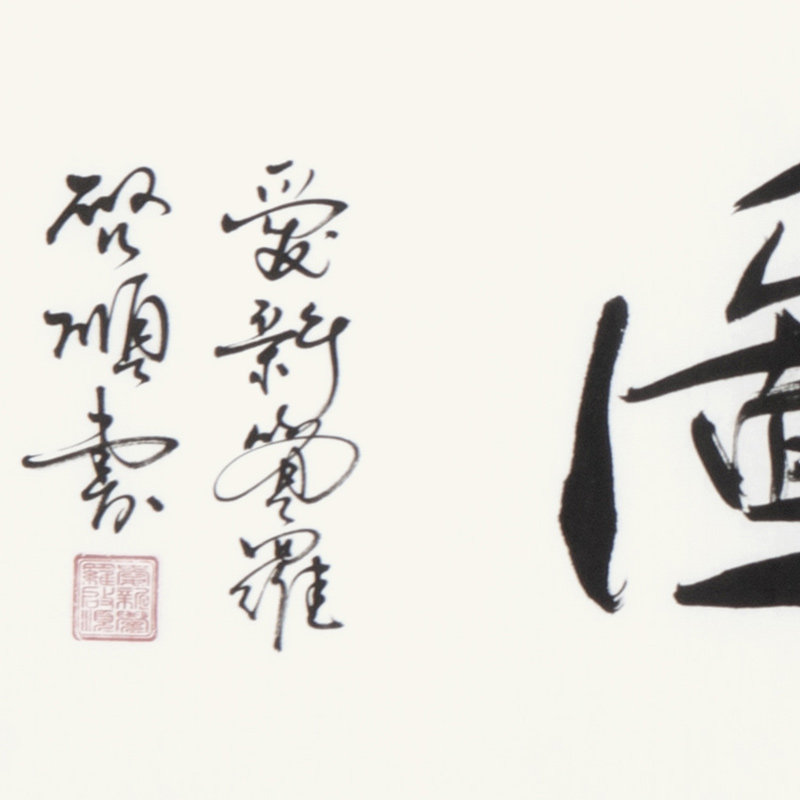 愛新覺羅
啓順書
愛新覺
羅啟順